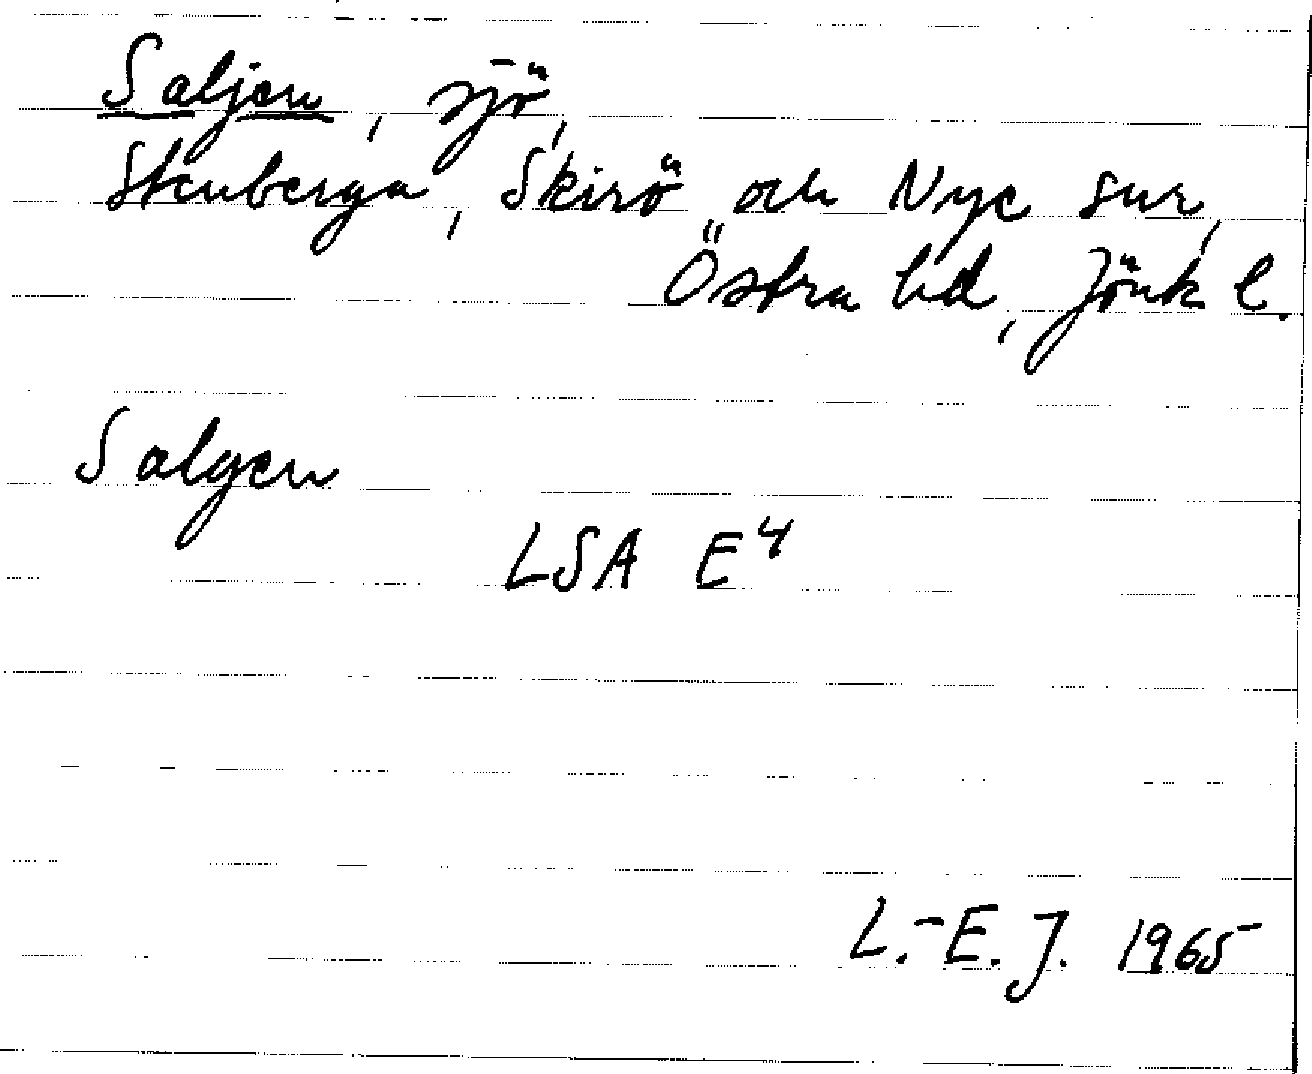 Saljen, sjö,
Stenberga, Skirö och Nye snr,
Östra hd, Jönk l.
Salgen
LSA E4
L.-E. J. 1965